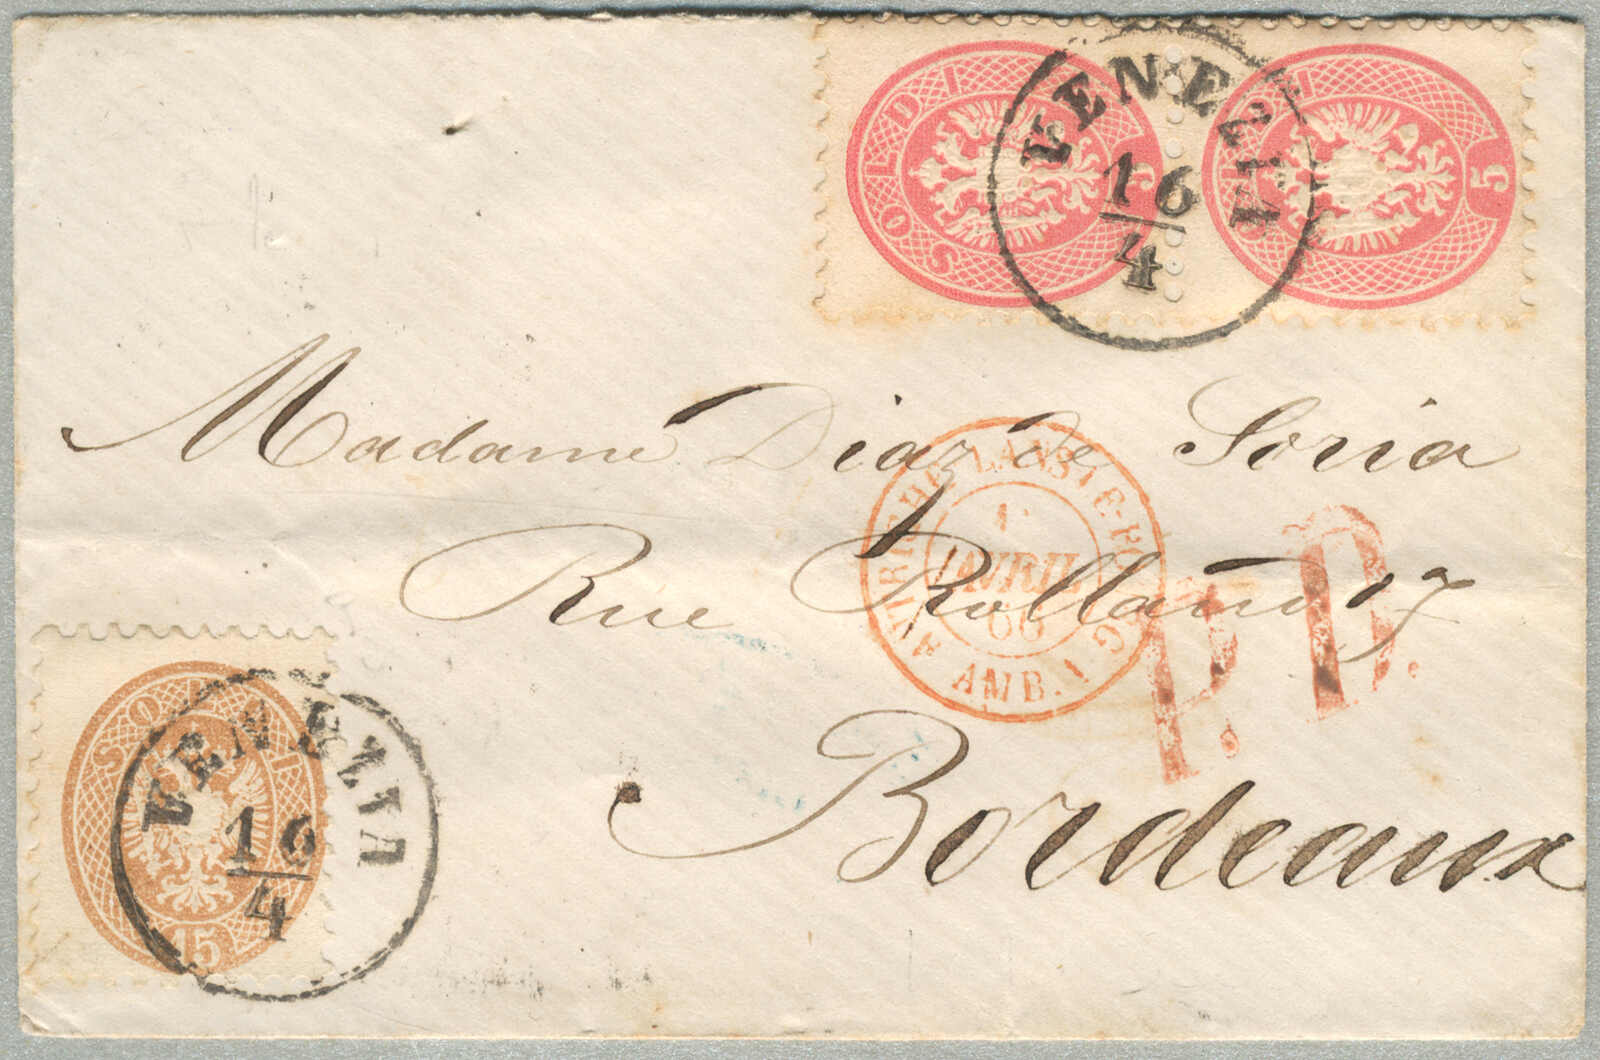 SOLDI 5
SOLDI 5
VENEZIA
16
4
Madame Diaz de Soria
Rue Rolland 17
Bordeaux
AVRIL
66
AMB.
P.D.
SOLDI 15
VENEZIA
16
4